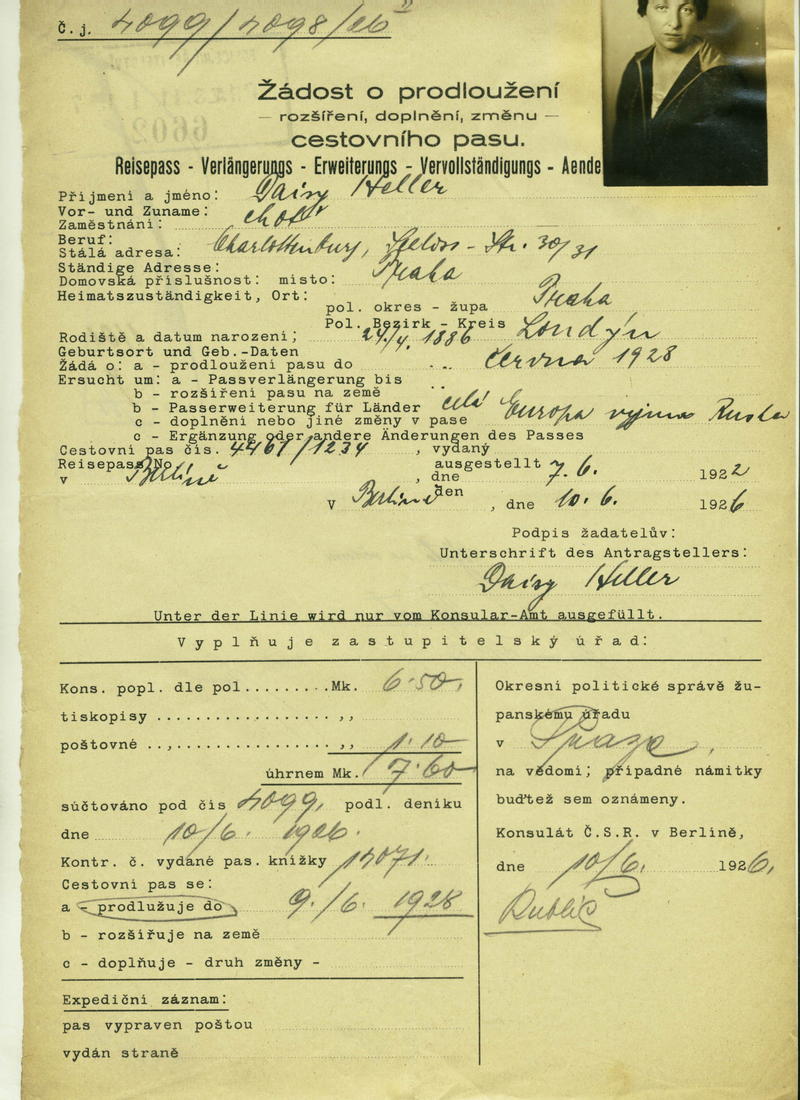 Č. j. 4099/4098/26
Žádost o prodloužení
— rozšíření, doplnění, změnu —
cestovního pasu.
Reisepass - Verlängerungs - Erweiterungs - Vervollständigungs - Aende
Příjmení a jméno: Daisy Heller
Vor- und Zuname:
Zaměstnání: choť
Beruf:
Stálá adresa: Charlottenburg, Str. 30/31
Ständige Adresse:
Domovská příslušnost: místo: Praha
Heimatszuständigkeit, Ort:
pol. okres - župa Praha
Pol. Bezirk - Kreis
Rodiště a datum narození; 24/4. 1886 Londýn
Geburtsort und Geb.-Daten
Žádá o: a - prodloužení pasu do června 1928
Ersucht um: a - Passverlängerung bis
b - rozšíření pasu na země
b - Passerweiterung für Länder celá Europa vyjma Ruska
c - doplnění nebo jiné změny v pase
c - Ergänzung oder andere Änderungen des Passes
Cestovní pas čís. 4461/1234, vydaný
Reisepass No. ausgestellt
v Berlíně, dne 7. 6. 1922
den
V Berlíně, dne 10. 6. 1926
Podpis žadatelův:
Unterschrift des Antragstellers:
Daisy Heller
Unter der Linie wird nur vom Konsular-Amt ausgefüllt.
Vyplňuje zastupitelský úřad:
Kons. popl. dle pol. Mk. 6·50,
tiskopisy ,,
poštovné ,, 1·10
úhrnem Mk. 7·60
súčtováno pod čís 4099, podl. deníku
dne 10/6. 1926.
Kontr. č. vydané pas. knížky 15071.
Cestovní pas se:
a - prodlužuje do 9./6. 1928
b - rozšiřuje na země
c - doplňuje - druh změny -
Expediční záznam:
pas vypraven poštou
vydán straně
Okresní politické správě žu-
panskému úřadu
v Praze,
na vědomí; případné námitky
buďtež sem oznámeny.
Konsulát Č.S.R. v Berlíně,
dne 10/6. 1926,